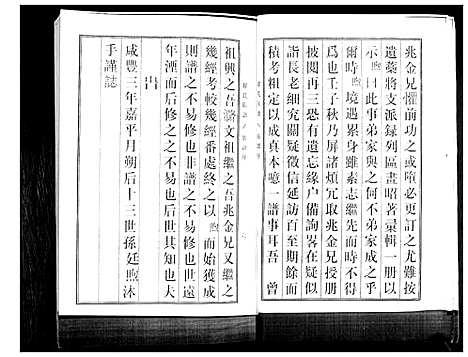 兆金兄懼前功之或墮必更訂之尤難採
遺藁將支派録列區畫昭著彙輯一册以
示煦曰此事弟家與之何不弟家成之乎
爾時煦境遇累身雖素志繼先而時不得
爲也壬子秋乃屏諸煩冗取兆金兄授册
披閱再三恐有遺忘緣户備詢畧在疑似
詣長老細究關疑徵信延訪百至期餘而
積考粗定以成真本噫一譜事耳吾 曾
祖興之吾 文祖繼之吾兆金兄又繼之
幾經考較幾經番處終之以煦而始獲成
則譜之不易修也世遠年湮而後修之之
不易也後世其知也夫
旹
咸豐三年嘉平月朔后十三世孫廷煦沐
手謹誌